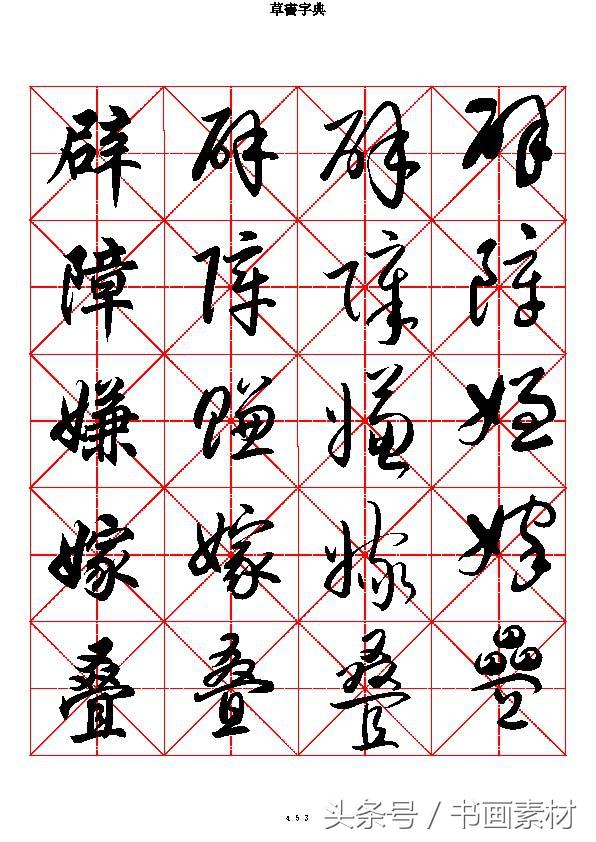 草書字典
辟 辟 辟 辟
障 障 障 障
嫌 嫌 嫌 嫌
嫁 嫁 嫁 嫁
叠 叠 叠 疊
4 5 3
头条号 / 书画素材